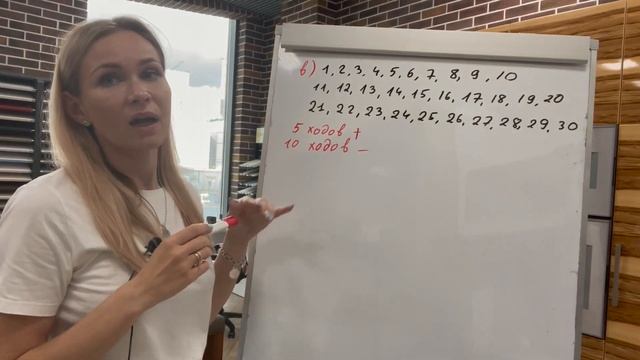 в) 1, 2, 3, 4, 5, 6, 7, 8, 9, 10
11, 12, 13, 14, 15, 16, 17, 18, 19, 20
21, 22, 23, 24, 25, 26, 27, 28, 29, 30
5 ходов +
10 ходов –